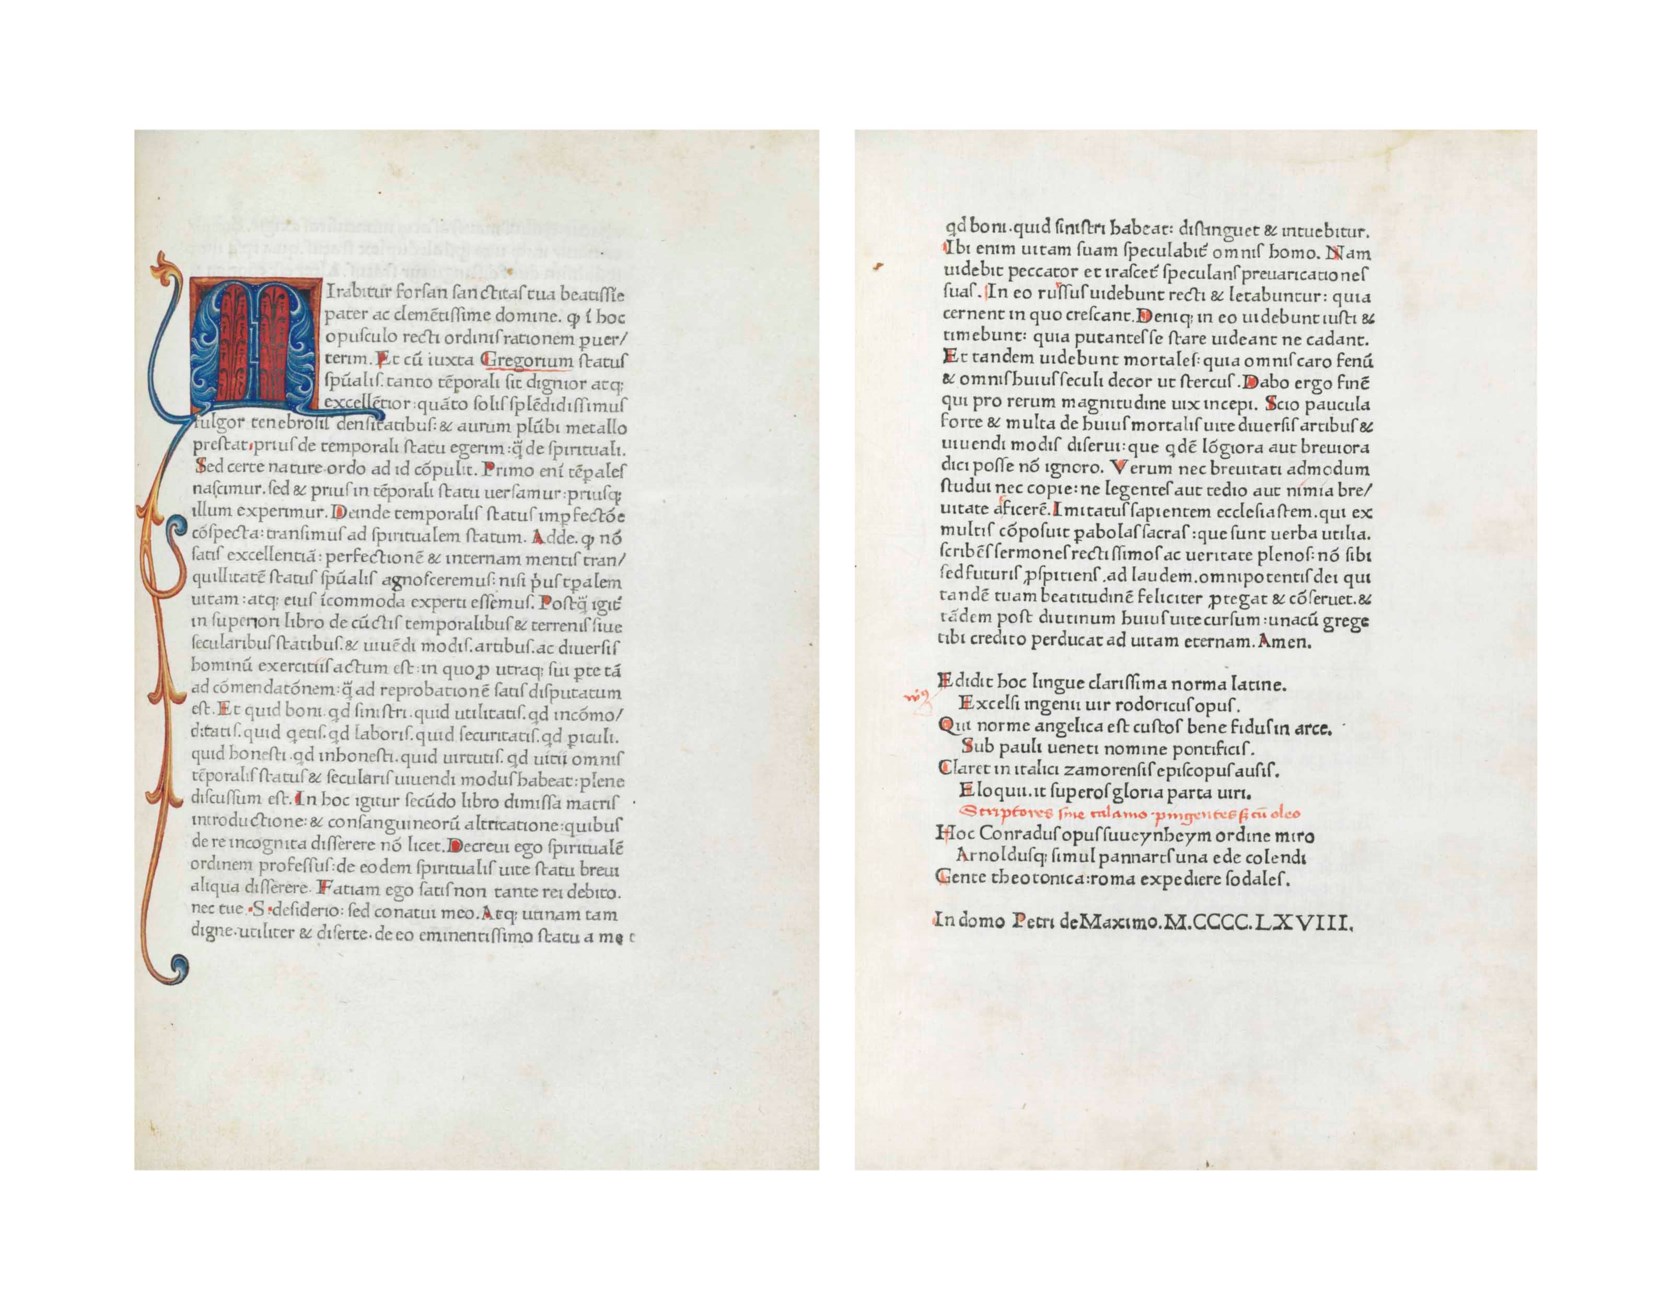 Irabitur forsan sanctitas tua beatissie
pater ac clemētissime domine. ꝙ ī hoc
opusculo recti ordinis rationem puer/
terim. Et cū iuxta Gregorium status
spūalis. tanto tēporali sit dignior atq;
excellētior: quāto solis splēdidissimus
fulgor tenebrosis densitatibus: & aurum plūbi metallo
prestat: prius de temporali statu egerim: q̄ de spirituali.
Sed certe nature ordo ad id cōpulit. Primo enī tēpales
nascimur. sed & prius in tēporali statu uersamur: priusq;
illum experimur. Deinde temporalis status impfectōe
cōspecta: transimus ad spiritualem statum. Adde. ꝙ nō
satis excellentiā: perfectionē & internam mentis tran/
quillitatē status spūalis agnosceremus: nisi p̓us tꝑalem
uitam: atq; eius īcommoda experti essemus. Postq̄ igit̄
in superiori libro de cūctis temporalibus & terrenis siue
secularibus statibus. & uiuēdi modis. artibus. ac diuersis
hominū exercitiis actum est: in quo ꝓ utraq; sui ꝑte tā
ad cōmendatōnem: q̄ ad reprobationē satis disputatum
est. Et quid boni. qd sinistri. quid utilitatis. qd incōmo/
ditatis. quid qetis. qd laboris. quid securitatis. qd ꝑiculi.
quid honesti. qd inhonesti. quid uirtutis. qd uitii omnis
tēporalis status & secularis uiuendi modus habeat: plene
discussum est. In hoc igitur secūdo libro dimissa matris
introductione: & consanguineorū altricatione: quibus
de re incognita disserere nō licet. Decreui ego spiritualē
ordinem professus: de eodem spiritualis uite statu breui
aliqua disserere. Fatiam ego satis non tante rei debito.
nec tue .S. desiderio: sed conatui meo. Atq; utinam tam
digne. utiliter & diserte. de eo eminentissimo statu a me t
qd boni. quid sinistri habeat: distinguet & intuebitur.
Ibi enim uitam suam speculabit̄ omnis homo. Nam
uidebit peccator et irascet̄ speculans preuaricationes
suas. In eo russus uidebunt recti & letabuntur: quia
cernent in quo crescant. Deniq; in eo uidebunt iusti &
timebunt: quia putantes se stare uideant ne cadant.
Et tandem uidebunt mortales: quia omnis caro fenū
& omnis huius seculi decor ut stercus. Dabo ergo finē
qui pro rerum magnitudine uix incepi. Scio paucula
forte & multa de huius mortalis uite diuersis artibus &
uiuendi modis diserui: que qdē lōgiora aut breuiora
dici posse nō ignoro. Verum nec breuitati admodum
studui nec copie: ne legentes aut tedio aut nimia bre/
uitate aficerē. Imitatus sapientem ecclesiastem. qui ex
multis cōposuit ꝑabolas sacras: que sunt uerba utilia.
scribēs sermones rectissimos ac ueritate plenos: nō sibi
sed futuris ꝓspitiens. ad laudem. omnipotentis dei qui
tandē tuam beatitudinē feliciter ꝓtegat & cōseruet. &
tādem post diutinum huius uite cursum: unacū grege
tibi credito perducat ad uitam eternam. Amen.
Edidit hoc lingue clarissima norma latine.
Excelsi ingenii uir rodoricus opus.
Qui norme angelica est custos bene fidus in arce.
Sub pauli ueneti nomine pontificis.
Claret in italici zamorensis episcopus ausis.
Eloquii. it superos gloria parta uiri.
Scriptores sine calamo pingentes sicū oleo
Hoc Conradus opus suueynheym ordine miro
Arnoldusq; simul pannarts una ede colendi
Gente theotonica: roma expediere sodales.
In domo Petri de Maximo. M.CCCC.LXVIII.